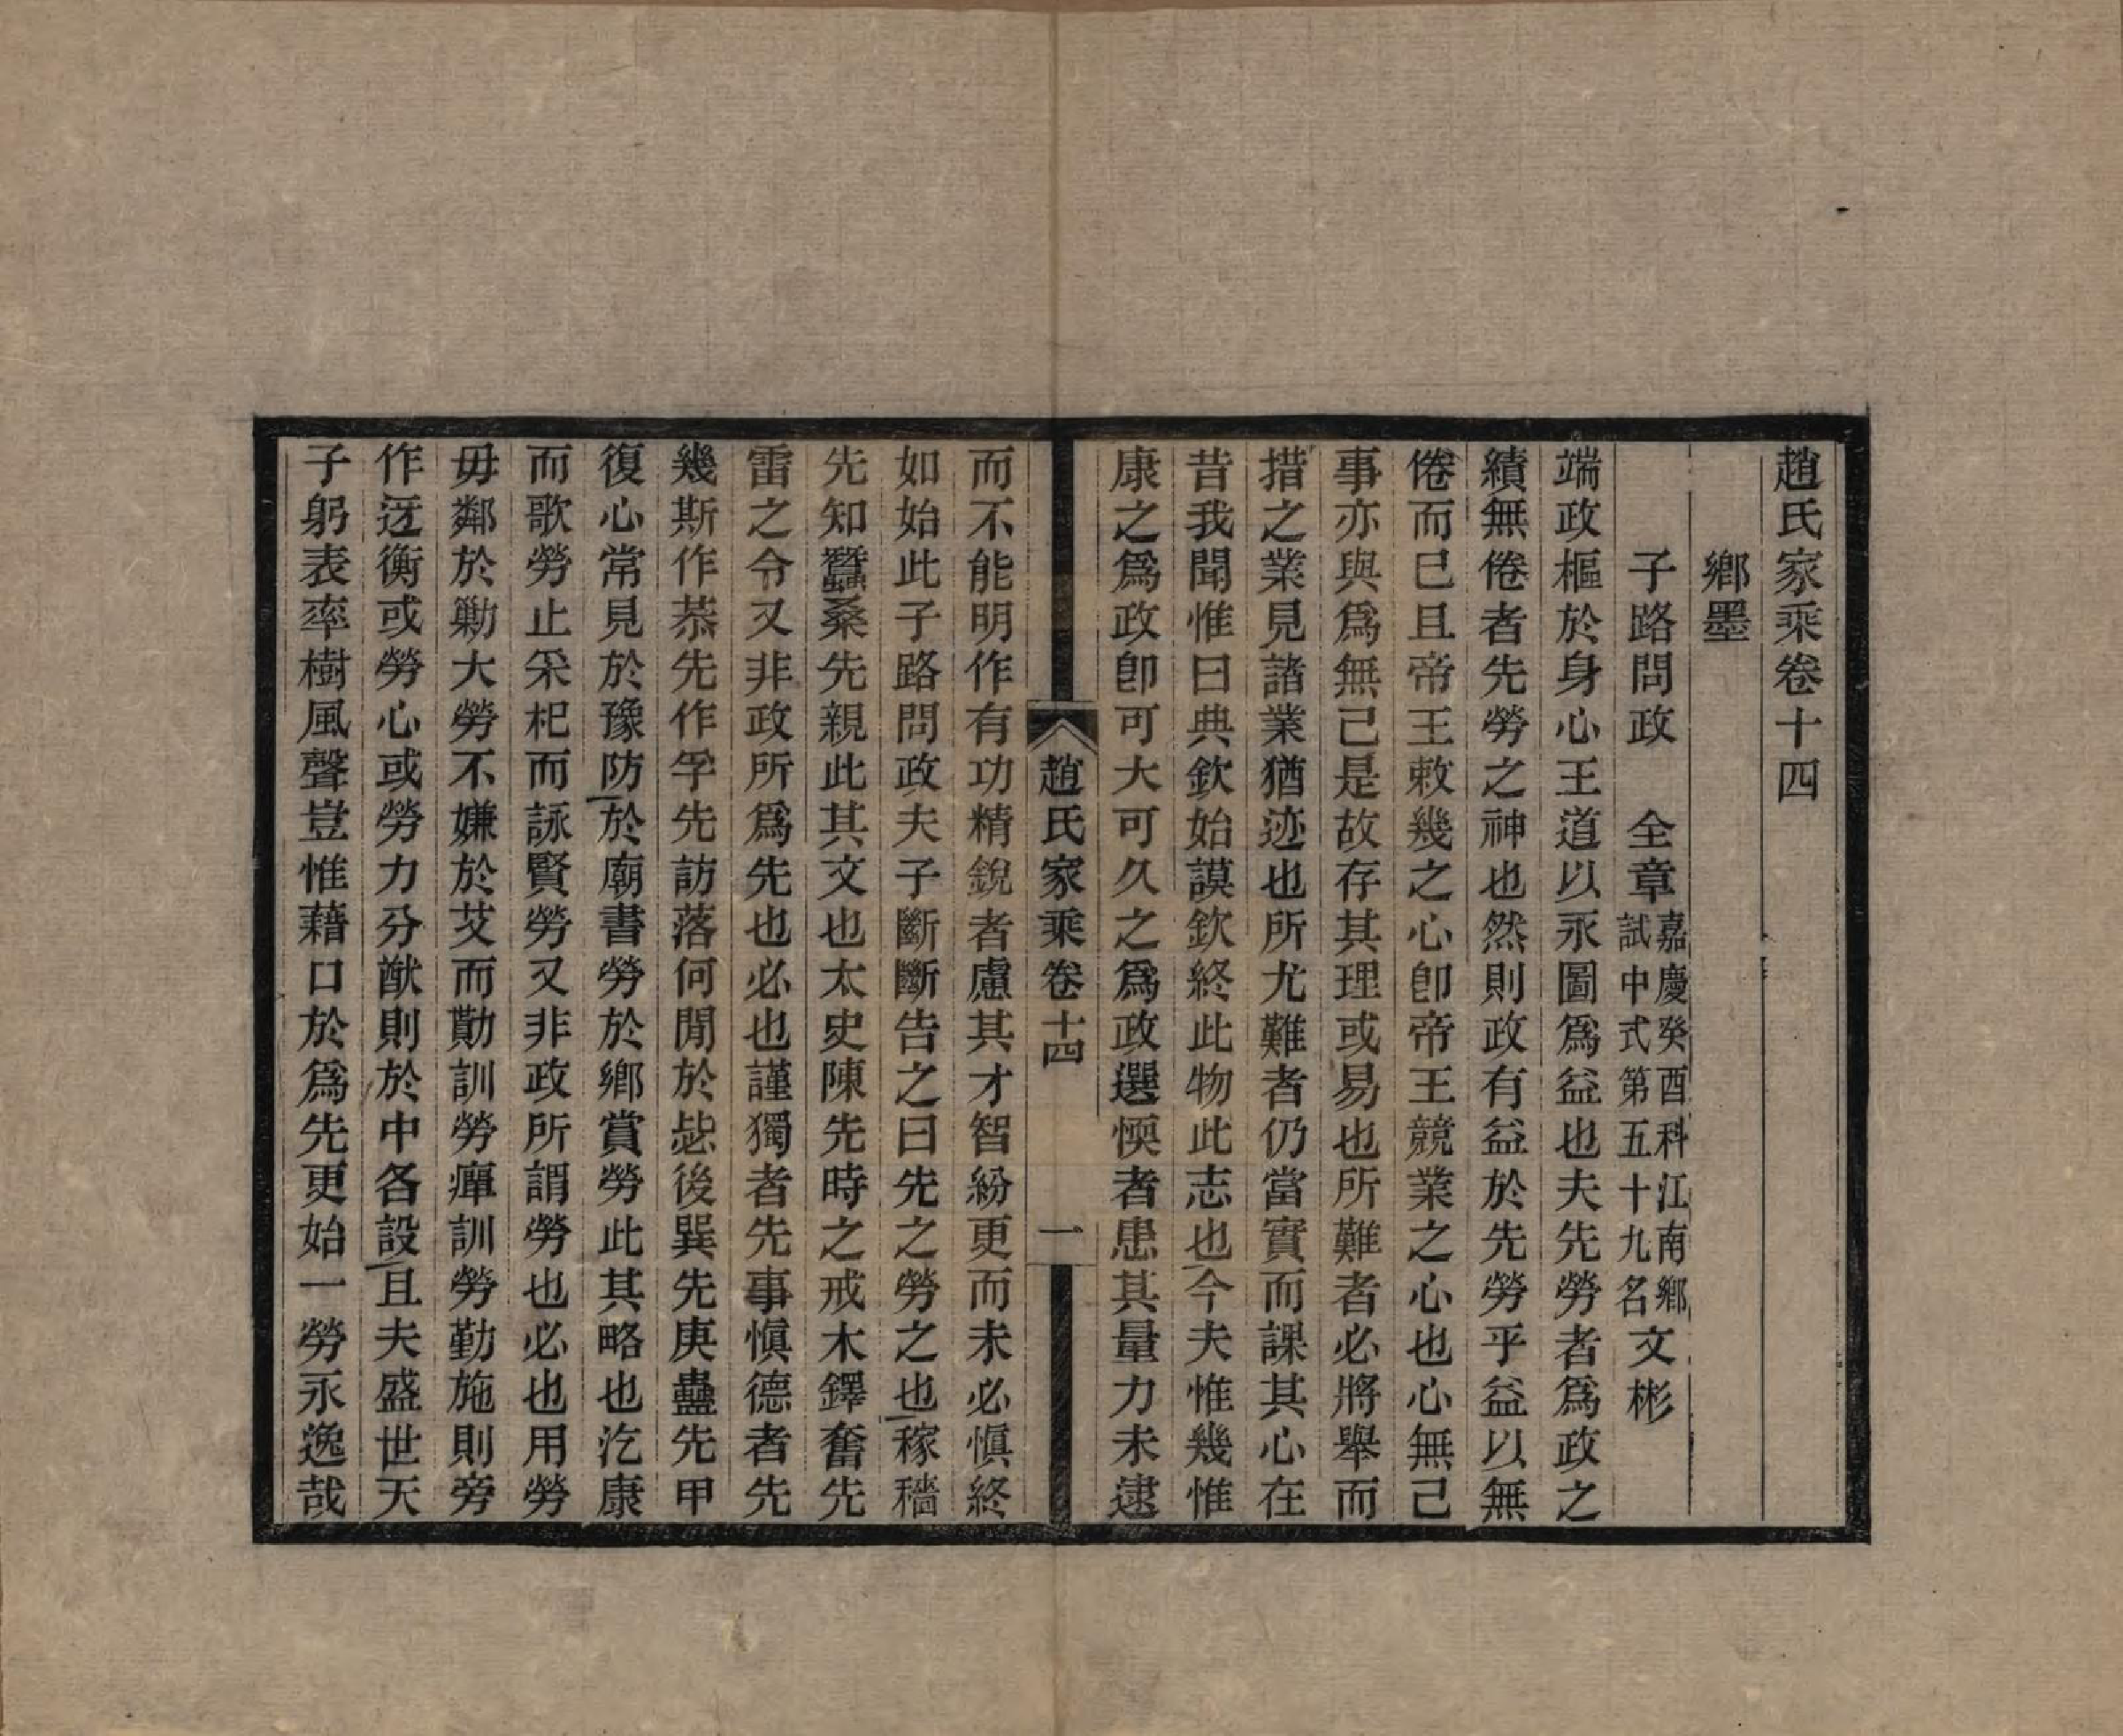 趙氏家乘卷十四
鄉墨
子路問政　全章嘉慶癸酉科江南鄉試中式第五十九名文彬
端政樞於身心王道以永圖爲益也夫先勞者爲政之
績無倦者先勞之神也然則政有益於先勞乎益以無
倦而已且帝王敕幾之心卽帝王競業之心也心無己
事亦與爲無己是故存其理或易也所難者必將舉而
措之業見諸業猶迹也所尤難者仍當實而課其心在
昔我聞惟曰典欽始謨欽終此物此志也今夫惟幾惟
康之爲政卽可大可久之爲政選愞者患其量力未逮
趙氏家乘卷十四　一
而不能明作有功精銳者慮其才智紛更而未必愼終
如始此子路問政夫子斷斷告之曰先之勞之也稼穡
先知蠶桑先親此其文也太史陳先時之戒木鐸奮先
雷之令又非政所爲先也必也謹獨者先事愼德者先
幾斯作恭先作孚先訪落何閒於毖後巽先庚蠱先甲
復心常見於豫防於廟書勞於鄉賞勞此其略也汔康
而歌勞止采杞而詠賢勞又非政所謂勞也必也用勞
毋鄰於勦大勞不嫌於艾而勩訓勞癉訓勞勤施則旁
作迓衡或勞心或勞力分猷則於中各設且夫盛世天
子躬表率樹風聲豈惟藉口於爲先更始一勞永逸哉